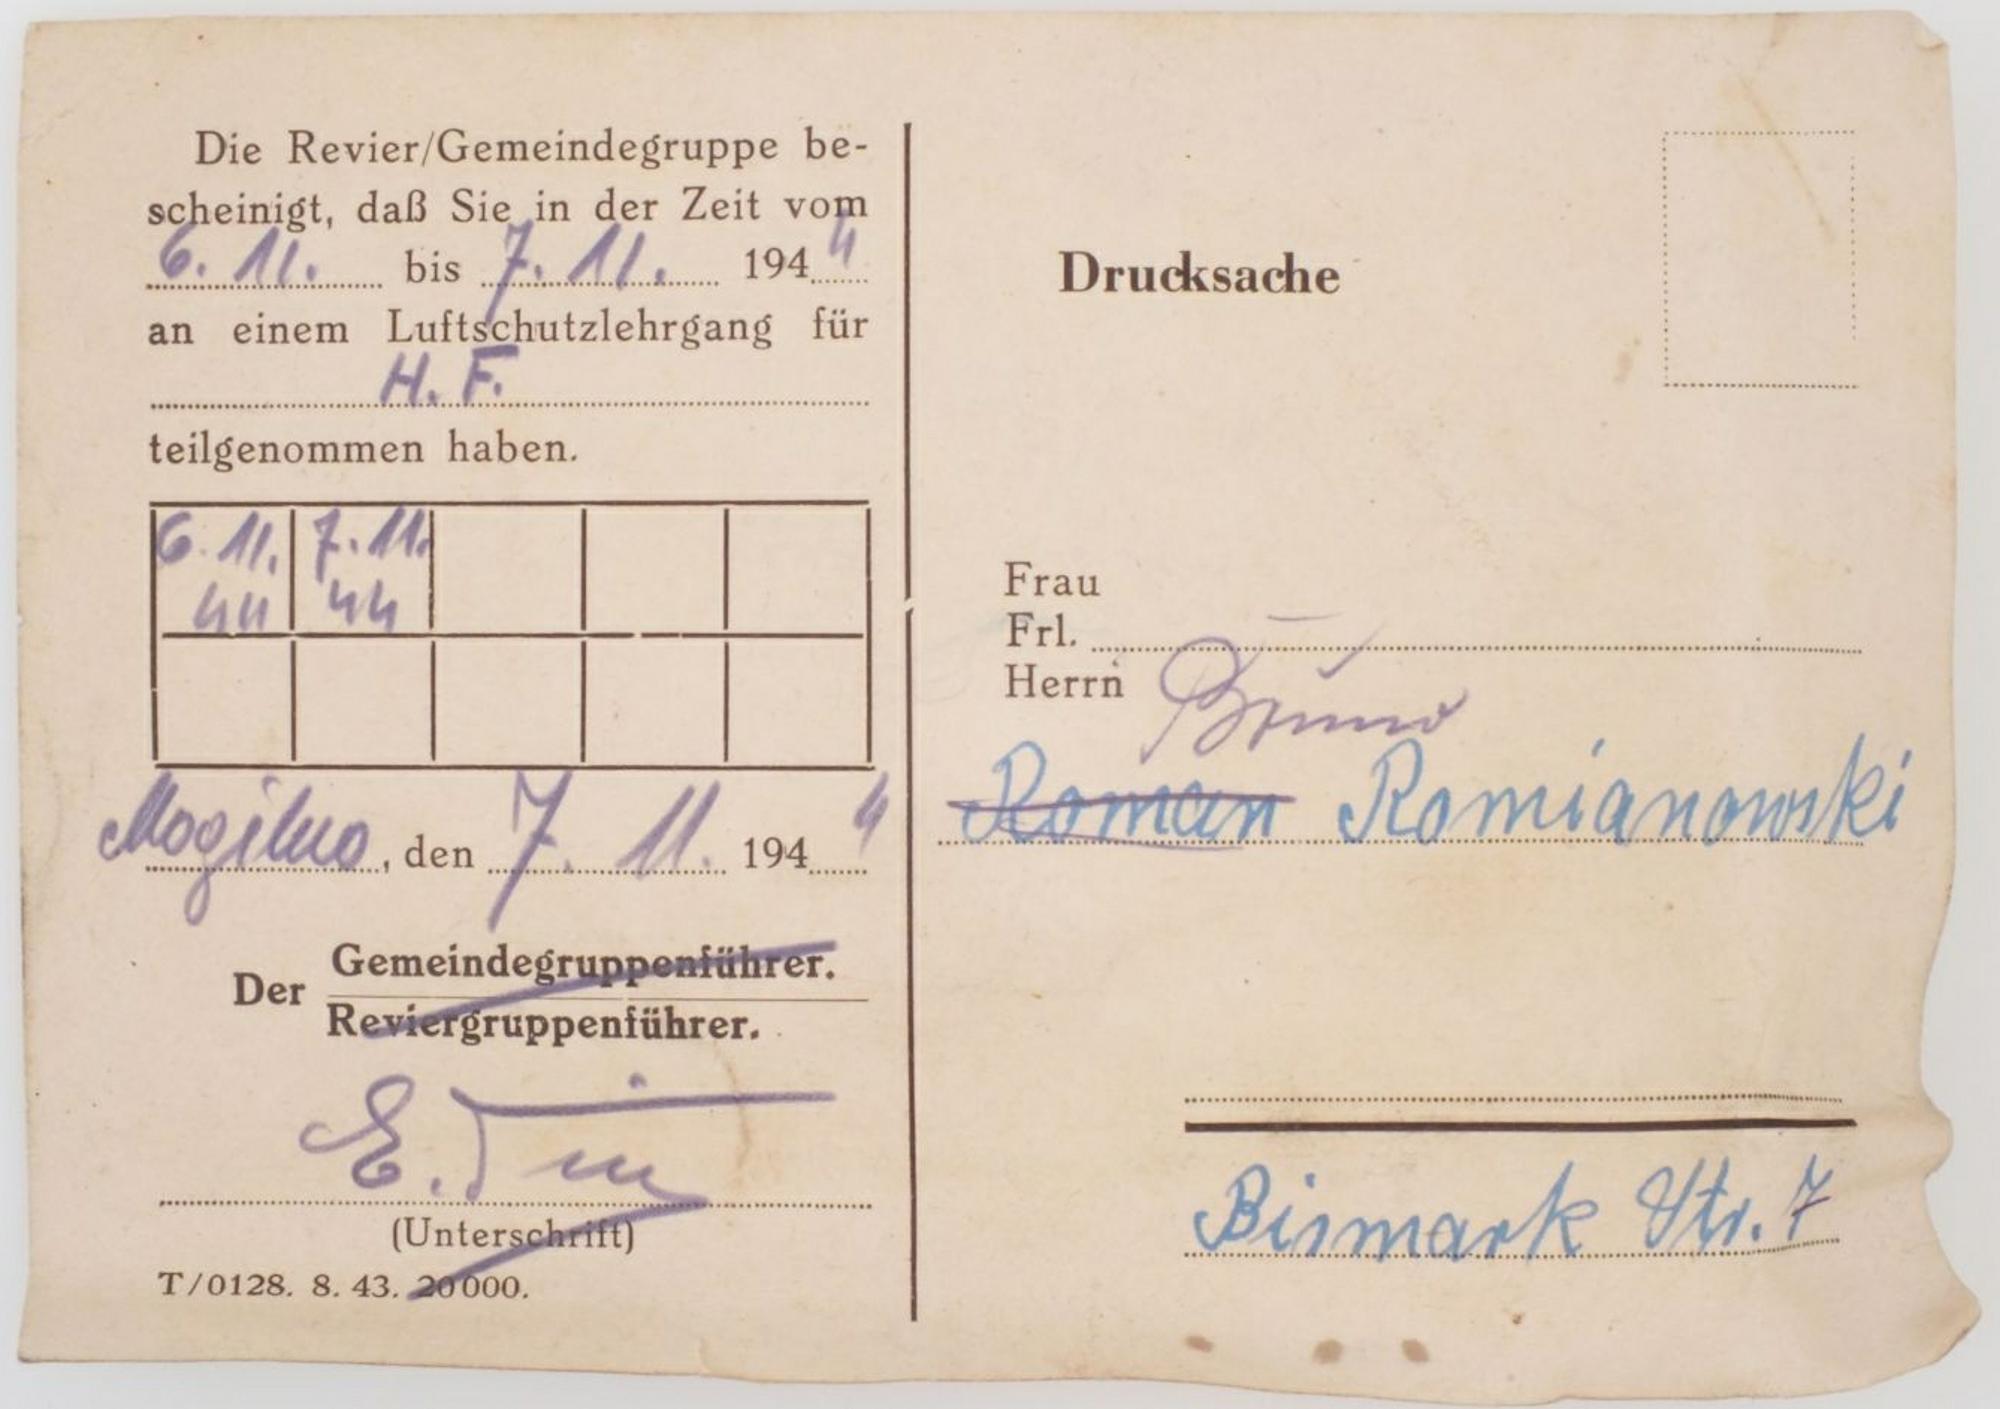 Die Revier/Gemeindegruppe be-
scheinigt, daß Sie in der Zeit vom
6. 11. bis 7. 11. 1944
an einem Luftschutzlehrgang für
H. F.
teilgenommen haben.
6. 11. 7. 11.
44 44
Mogilno, den 7. 11. 1944
Gemeindegruppenführer.
Der
Reviergruppenführer.
E.
(Unterschrift)
T/0128. 8. 43. 20000.
Drucksache
Frau
Frl.
Herrn Bruno
Roman Romianowski
Bismark Str. 7